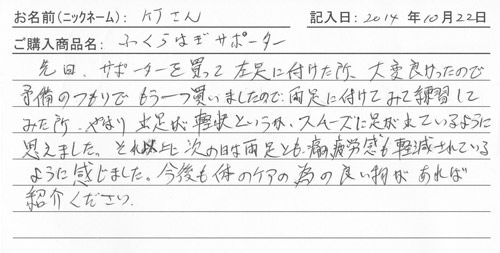 お名前(ニックネーム): KTさん 記入日: 2014年10月22日
ご購入商品名: ふくらはぎサポーター
先日、サポーターを買って左足に付けた所、大変良かったので
予備のつもりでもう一つ買いましたので両足に付けてみて練習して
みた所、やはり出足が軽快というか、スムーズに足が出ているように
思えました。それ以上に次の日は両足とも、痛み疲労感も軽減されている
ように感じました。今後も体のケアの為の良い物があれば
紹介ください.